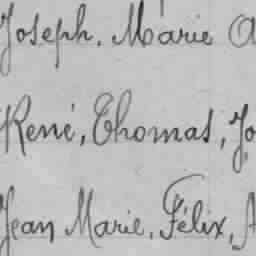 Joseph. Marie A
René, Thomas, Jo
Jean Marie, Félix, A